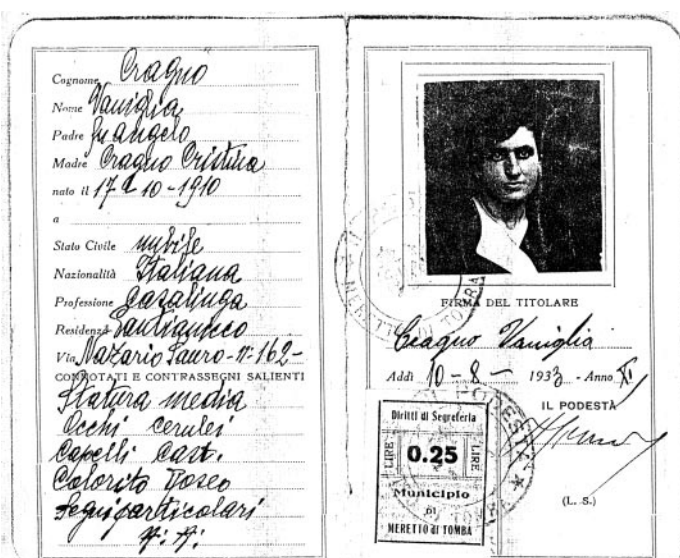 Cognome Cragno
Nome Vaniglia
Padre fu Angelo
Madre Cragno Cristina
nato il 17-10-1910
a
Stato Civile nubile
Nazionalità Italiana
Professione Casalinga
Residenza
Via Nazario Sauro - n: 162 -
CONNOTATI E CONTRASSEGNI SALIENTI
Statura media
Occhi cerulei
Capelli Cast.
Colorito Roseo
Segni particolari
MERETTO DI TOMBA
FIRMA DEL TITOLARE
Cragno Vaniglia
Addì 10-8- 1933 - Anno XI
IL PODESTÀ
(L. S.)
Diritti di Segreteria
LIRE 0.25 LIRE
Municipio
DI
MERETTO di TOMBA